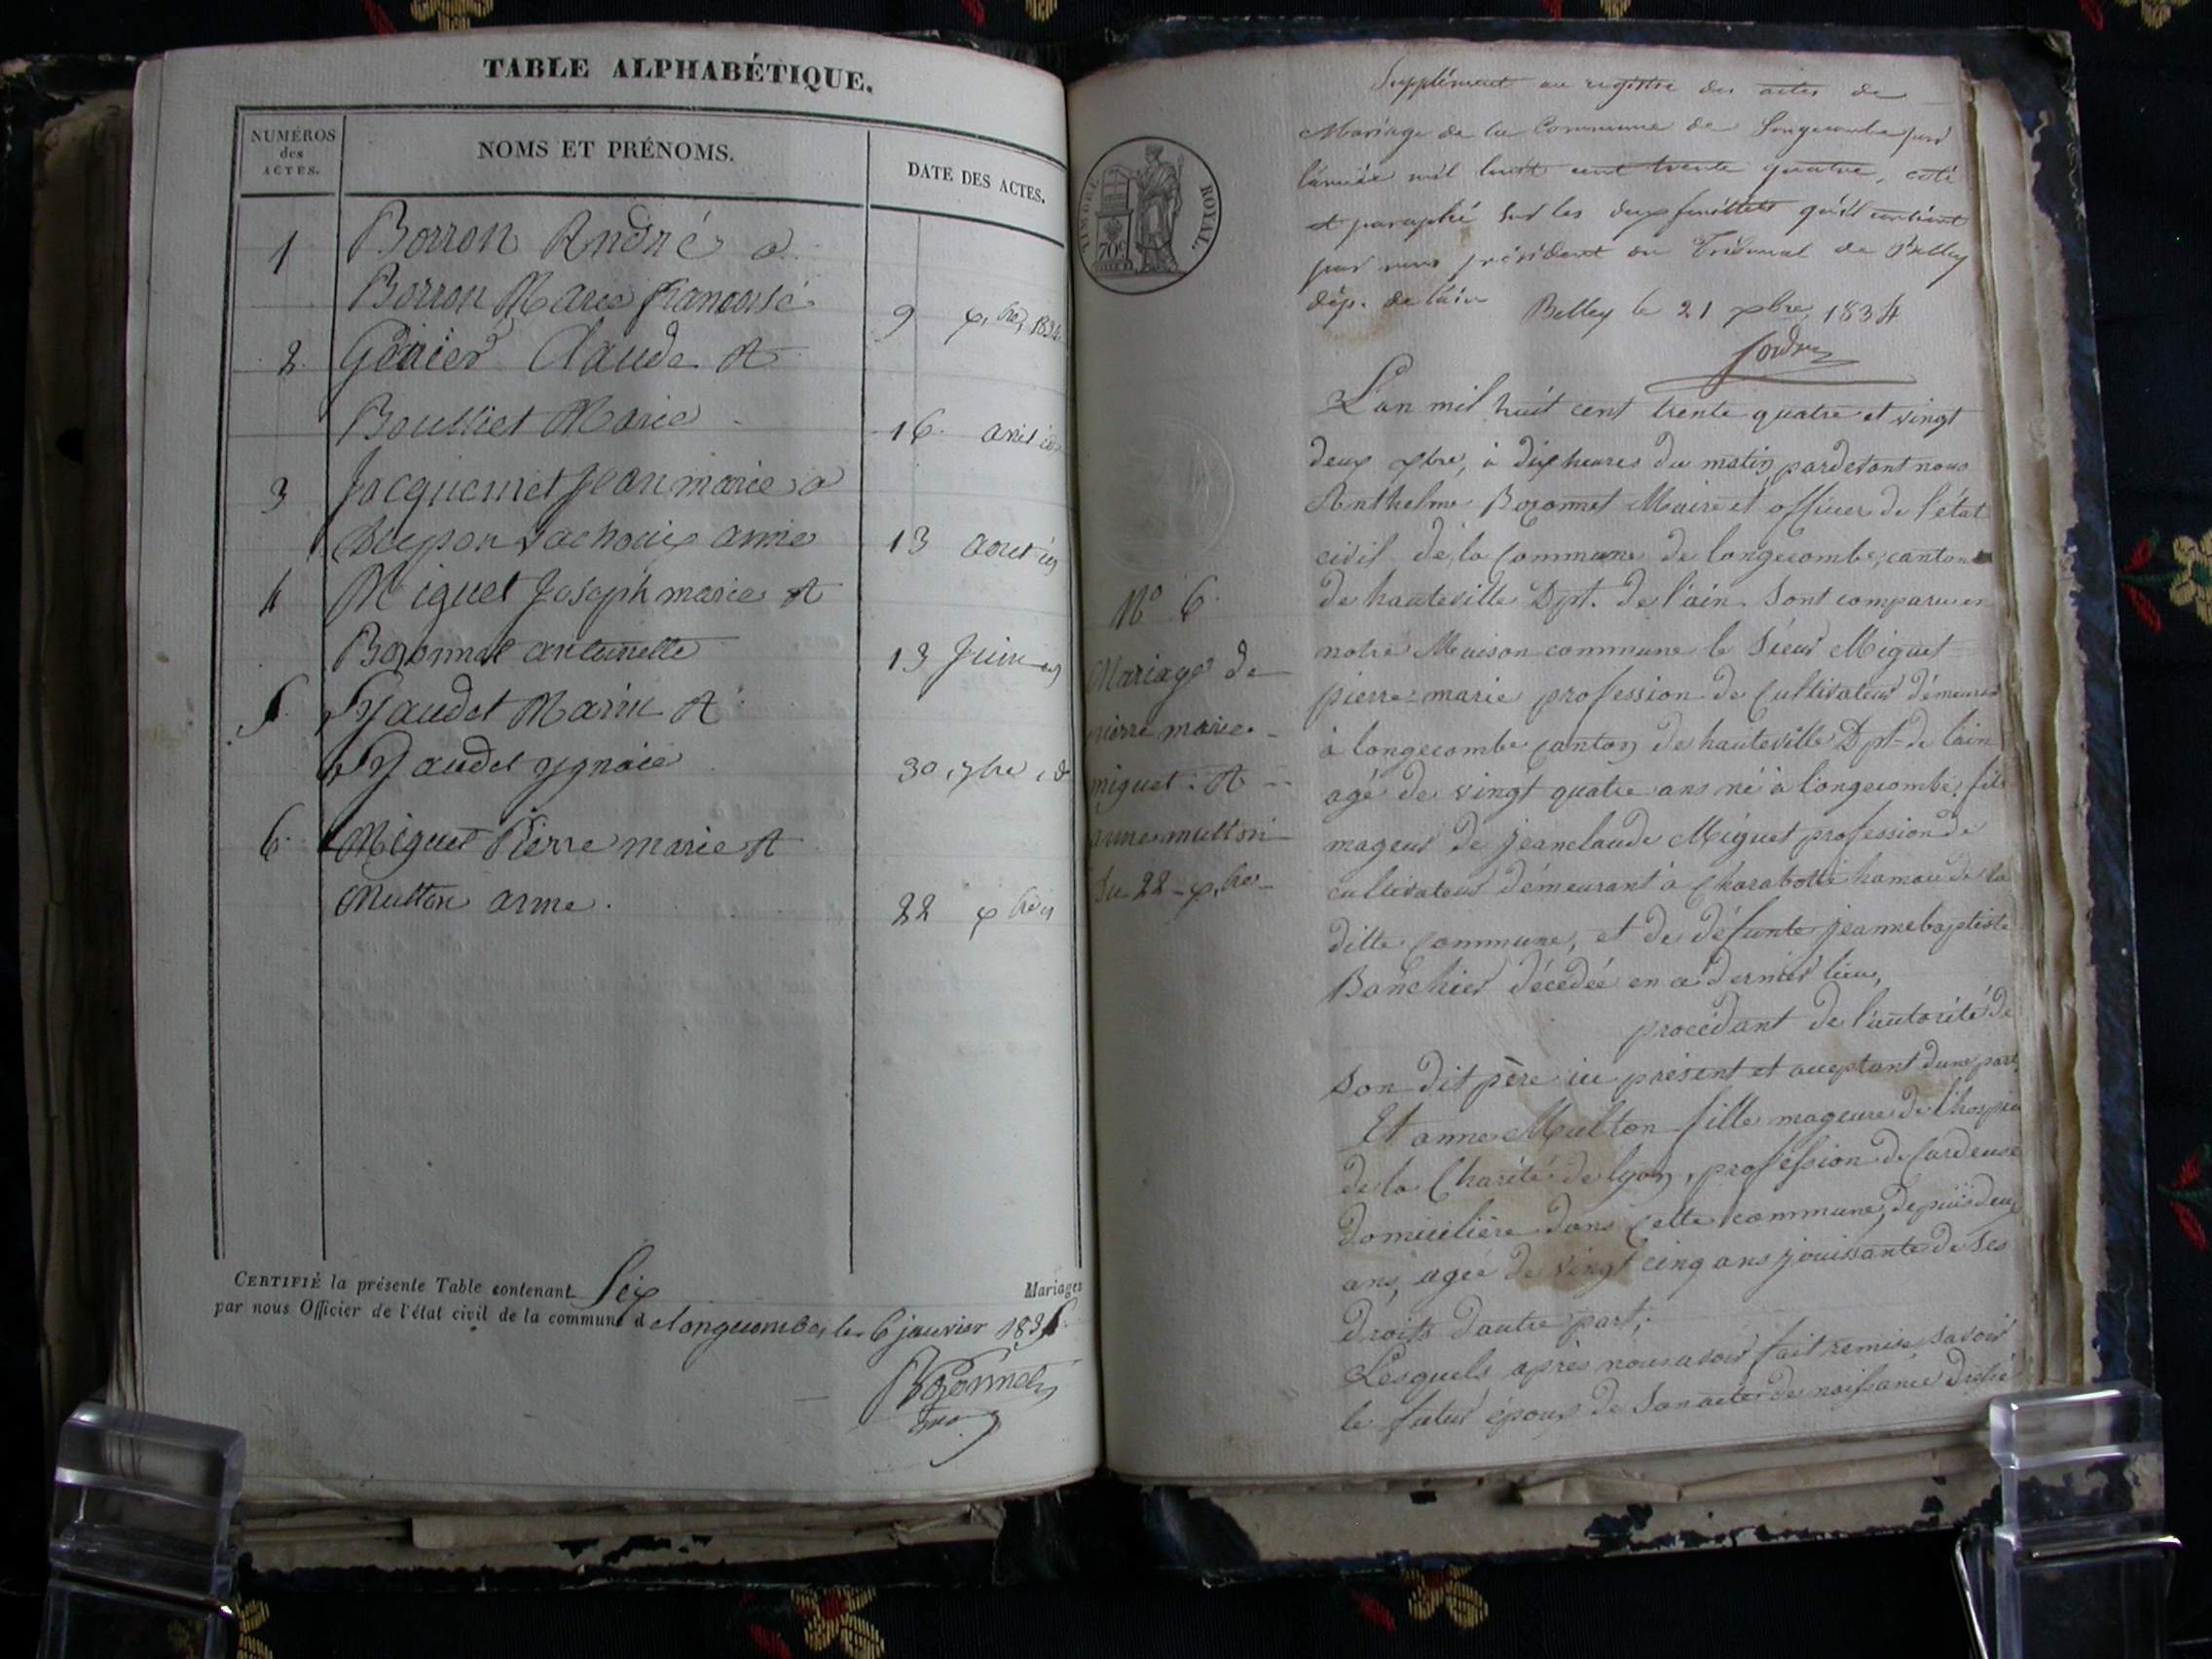 TABLE ALPHABÉTIQUE.
NUMÉROS des ACTES.
NOMS ET PRÉNOMS.
DATE DES ACTES.
1 Borron André a
Borron Marie françoise 9 xbre 1834
2 Claude et
Boulliet Marie 16 avril
3 Jacquemet jean marie a
anne 13 aout
4 Miguet Joseph marie et
Bozonnet antoinette 13 Juin
5 Marin et
30 7bre id
6 Miguet Pierre marie et
Multon anne. 22 xbre
CERTIFIÉ la présente Table contenant Six Mariages
par nous Officier de l'état civil de la commune de longecombe, le 6 janvier 1835.
Bozonnet
TIMBRE ROYAL.
70c
Supplément au registre des actes de
Mariage de la Commune de Longecombe pour
l'année mil huit cent trente quatre, coté
et paraphé sur les deux feuillets qu'il contient
par nous président du Tribunal de Belley
dép. de l'ain Belley le 21 xbre 1834
N° 6.
Mariage de
pierre marie
miguet: et
anne multon
du 22 xbre
L'an mil huit cent trente quatre et vingt
deux xbre, à dix heures du matin pardevant nous
Anthelme Bozonnet Maire et officier de l'état
civil de la Commune de longecombe, canton
de hauteville Dpt. de l'ain. Sont comparu en
notre Maison commune le Sieur Miguet
pierre-marie profession de Cultivateur démeurant
à longecombe canton de hauteville Dpt de l'ain
agé de vingt quatre ans né à longecombe, fils
mageur de jeanclaude Miguet profession de
cultivateur démeurant à Charabotte hamau de la
ditte Commune, et de défunte jeannebaptiste
Banchier décédée en ce dernier lieu,
procédant de l'autorité de
son dit père ici présent et aceptant d'une part.
Et anne Multon fille mageure de l'hospice
de la Charité de lyon, profession de Cardeuse
domicilière dans Cette commune, depuis deux
ans, agée de vingt cinq ans jouissante de ses
droits d'autre part;
Lesquels après nous avoir fait remise savoir
le futur époux de Son acte de naissance